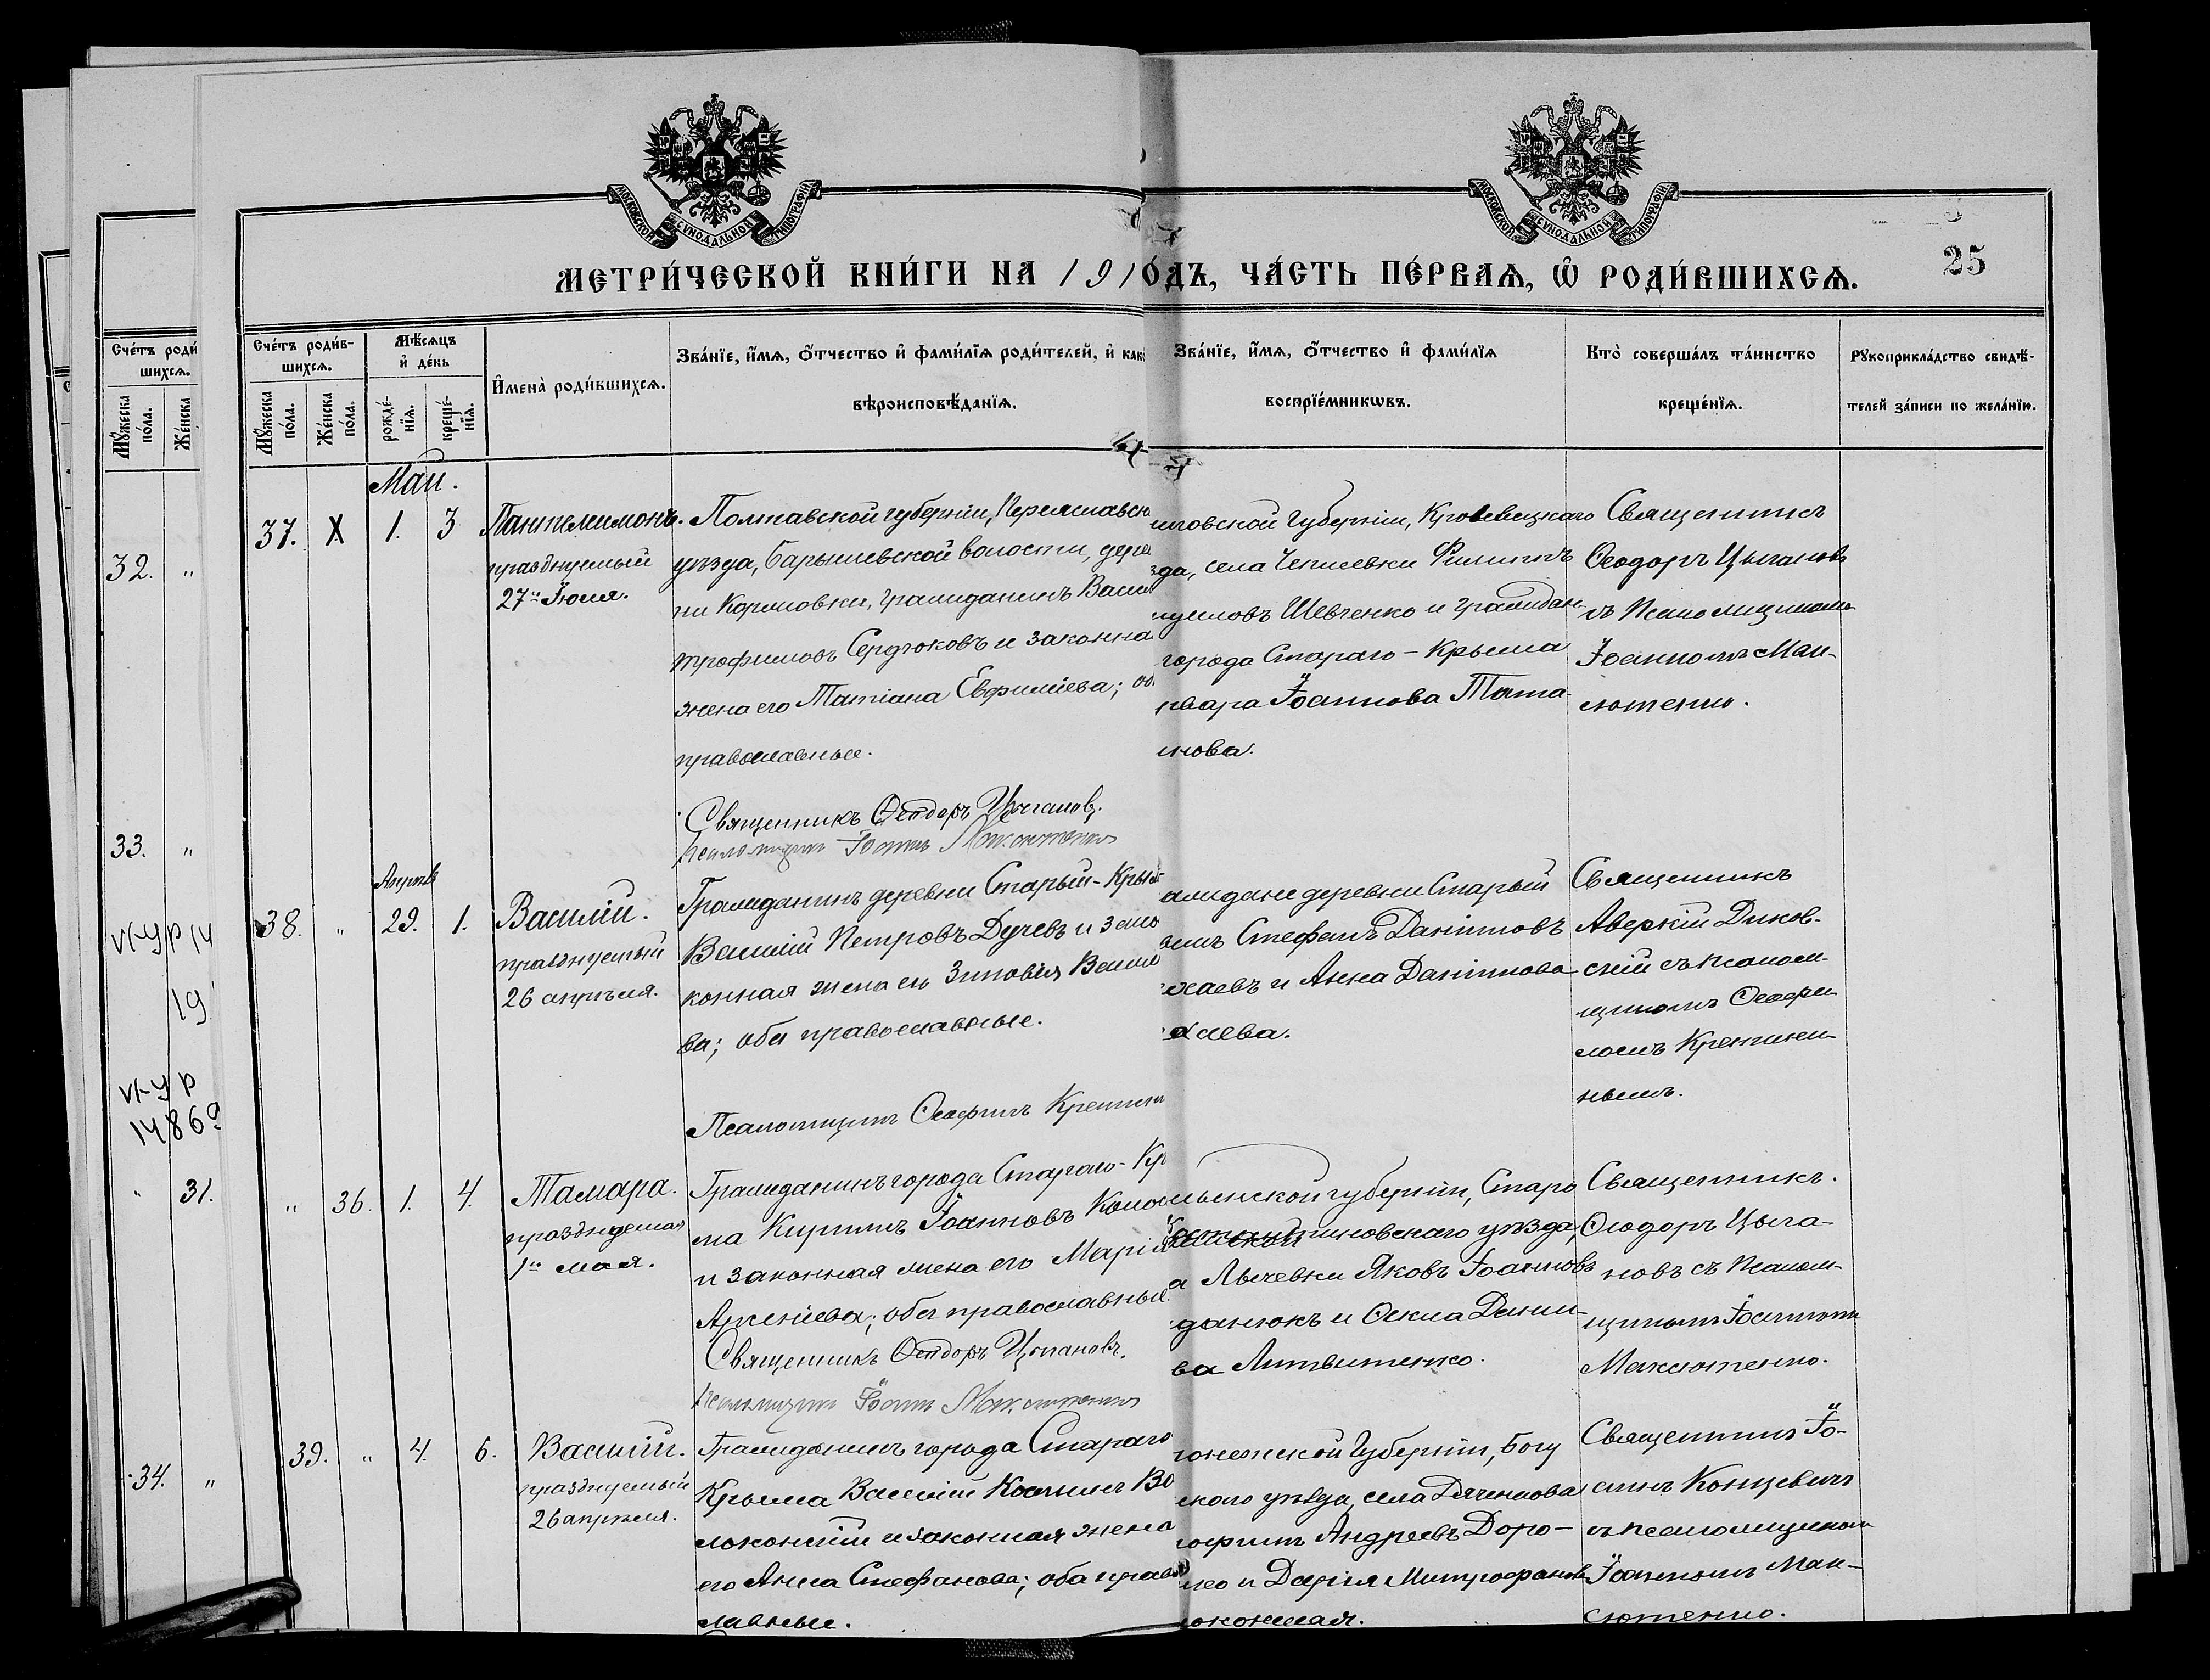 МОСКОВСКОЙ СѴНОДАЛЬНОЙ ТИПОГРАФІИ
МОСКОВСКОЙ СѴНОДАЛЬНОЙ ТИПОГРАФІИ
25
МЕТРИ́ЧЕСКОЙ КНИ́ГИ НА 191
О́ДЪ, ЧА́СТЬ ПЕ́РВАѦ, Ѡ҆ РОДИ́ВШИХСѦ.
Сче́тъ роди
шихсѧ.
Мꙋ́жеска по́ла.
Же́нска
32. „
33. „
„ 31.
34. „
Сче́тъ роди́в-
шихсѧ.
Мꙋ́жеска по́ла.
Же́нска по́ла.
Мѣ́сѧцъ
и҆ де́нь
рожде́нїѧ.
креще́нїѧ.
И҆мена̀ роди́вшихсѧ.
Зва́нїе, и҆́мѧ, ѻ҆́тчество и҆ фами́лїѧ роди́телей, и҆ како
вѣроисповѣ́данїѧ.
Зва́нїе, и҆́мѧ, ѻ҆́тчество и҆ фами́лїѧ
воспрїе́мникѡвъ.
Кто̀ соверша́лъ та́инство
креще́нїѧ.
Рꙋкоприкла́дство свидѣ́-
телей за́писи по жела́нїю.
Май.
37. X 1. 3
Пантелимонъ.
празднуемый
27го Іюля.
Полтавской губерніи, Переяславск
уѣзда, Барышевской волости, дере
ни Коржовки, гражданинъ Васил
Трофимовъ Сердюковъ и законна
жена его Татіана Евфиміева; об
православные.
Священникъ Ѳеодоръ Цыгановъ.
Псаломщикъ Іоаннъ Максютенко
иговской губерніи, Кролевецкаго
зда, села Чеплеевки Филиппъ
Шевченко и граждан-
города Стараго-Крыма
рвара Іоаннова Тата-
инова.
Священникъ
Ѳеодоръ Цыгановъ
съ Псаломщикомъ
Іоанномъ Мак-
сютенко.
Апрѣль
38. „ 29. 1.
Василій.
празднуемый
26 апрѣля.
Гражданинъ деревни Старый-Крым
Василій Петровъ Дучевъ и зако
конная жена его Зиновія Васил
ва; оба православные.
Псаломщикъ Ѳеофилъ Кретинин
аждане деревни Старый
Стефанъ Даніиловъ
и Анна Даніилова
Священникъ
Аверкій Диков-
скій съ псалом-
щикомъ Ѳеофи-
ломъ Кретинин-
нымъ.
„ 36. 1. 4.
Тамара.
празднуемая
1го мая.
Гражданинъ города Стараго-Кр
ма Кириллъ Іоанновъ
и законная жена его Марія
Арсеніева; оба православные.
Священникъ Ѳеодоръ Цыгановъ.
Псаломщикъ Іоаннъ Максютенко
лынской губерніи, Старо
константиновскаго уѣзда,
Яковъ Іоанновъ
данюкъ и Ѳекла Дани-
ва Литвиненко.
Священникъ.
Ѳеодоръ Цыга-
новъ съ псалом-
щикомъ Іоанномъ
Максютенко.
39. „ 4. 6.
Василій.
празднуемый
26 апрѣля.
Гражданинъ города Стараго
Крыма Василій Косминъ Во
локонскій и законная жена
его Анна Стефанова; оба право
славные.
ронежской губерніи, Богу
скаго уѣзда, села Дяченкова
Андреевъ Доро-
и Дарія Митрофанов
Священникъ Іо-
аннъ Концевичъ
съ псаломщикомъ
Іоанномъ Мак-
сютенко.